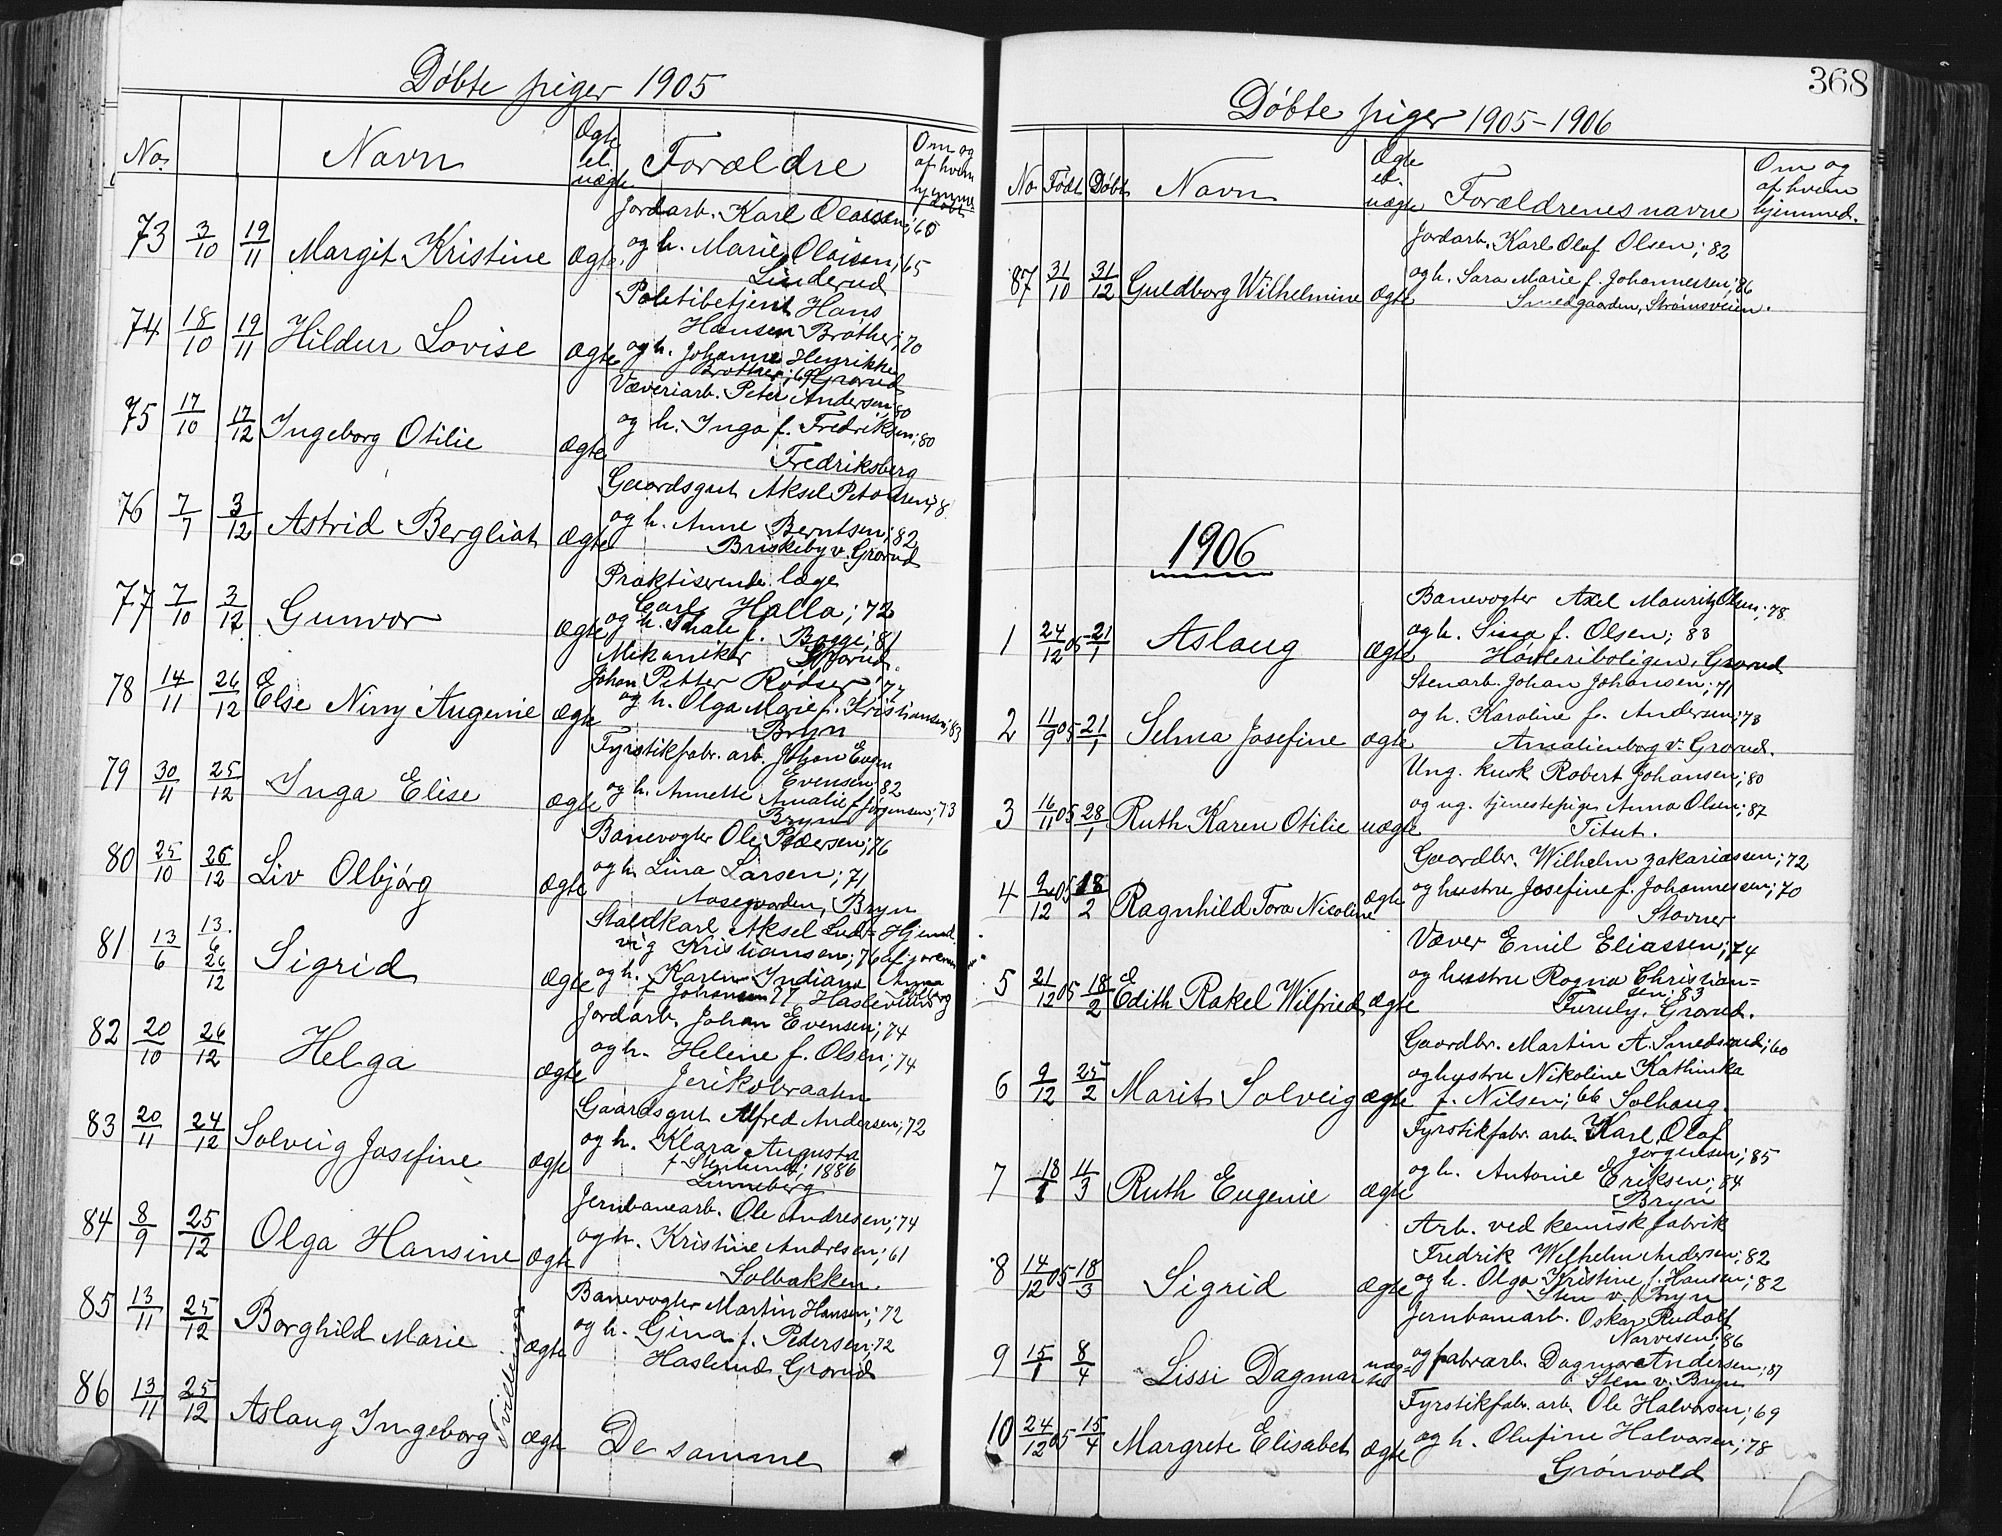 Døbte piger 1905
No. Navn Ægte el. uægte Forældre Om og af hvem hjemmedøbt
73 3/10 19/11 Margit Kristine Ægte Jordarb. Karl Olaisen; 65
og h. Marie Olaisen; 65
Linderud
74 18/10 19/11 Hildur Lovise Ægte Politibetjent Hans
Hansen Brøther; 70
og h. Johanne Henrikke
Brøther; Grorud
75 17/10 17/12 Ingeborg Otilie Ægte Væveriarb. Peter Andersen; 80
og h. Inga f. Fredriksen; 80
Fredriksberg
76 7/7 3/12 Astrid Bergliot Ægte Gaardsgut Aksel
og h. Anne Berntsen; 82
Briskeby v. Grorud
77 7/10 3/12 Gunvor Ægte Praktiserende læge
Carl Halla; 72
og h. Thale f. Bagge; 81
Grorud.
78 14/11 26/12 Else Ninny Augenie Ægte Mekaniker
Johan Petter Rødser; 77
og h. Olga Marie f. Kristiansen; 83
Bryn
79 30/11 25/12 Inga Elise Ægte Fyrstikfabr. arb. Johan Even
Evensen; 82
og h. Annette Amalie f. Jørgensen; 73
Bryn
80 25/10 26/12 Liv Olbjørg Ægte Banevogter Ole Pedersen; 76
og h. Lina Larsen; 71
Aasegaarden, Bryn
81 13/6 13/6 26/12 Sigrid Ægte Staldkarl Aksel Lud- Hjemd.
vig Kristiansen; 76 af jorem
og h. Karen Indiana Anna
f. Johansen 77 Haslevund Solberg
82 20/10 26/12 Helga Ægte Jordarb. Johan Evensen; 74
og h. Helene f. Olsen; 74
Jerikobraaten
83 20/11 24/12 Solveig Josefine Ægte Gaardsgut Alfred Andersen; 72
og h. Klara Augusta
f. Stenlund; 1886
Linneberg
84 8/9 25/12 Olga Hansine Ægte Jernbanearb. Ole Andresen; 74
og h. Kristine Andresen; 61
Solbakken.
85 13/11 25/12 Borghild Marie Ægte Banevogter Martin Hansen; 72
og h. Gina f. Pedersen; 72
Haslerud Grorud
86 13/11 25/12 Aslaug Ingeborg Tvillinger Ægte De samme
368
Døbte piger 1905-1906
No Født Døbt Navn Ægte el. uægte Forældrenes navne Om og af hvem hjemmed.
87 31/10 31/12 Guldborg Wilhelmine Ægte Jordarb. Karl Olaf Olsen; 82
og h. Sara Marie f. Johannesen; 86
Smedgaarden, Strømsveien.
1906
1 24/12 05 21/1 Aslaug Ægte Banevogter Axel Mauritz Olsen; 78
og h. Sina f. Olsen; 83
Høvleriboligen, Grorud
2 11/9 05 21/1 Selma Josefine Ægte Stenarb. Johan Johansen; 71
og h. Karoline f. Andersen; 73
Amalienborg v. Grorud.
3 16/11 05 28/1 Ruth Karen Otilie uægte Ung. kusk Robert Johansen; 80
og ug. tjenestepige Anna Olsen; 87
Titut.
4 2/12 05 18/2 Ragnhild Tora Nicoline Ægte Gaardbr. Wilhelm Zakariassen; 72
og hustru Josefine f. Johannesen; 70
Stovner
5 21/12 05 18/2 Edith Rakel Wilfried Ægte Væver Emil Eliassen; 74
og hustru Ragna Christian=
sen; 83
Furuly, Grorud.
6 9/12 25/2 Marit Solveig Ægte Gaardbr. Martin A. Smedsrud; 60
og hustru Nikoline Kathinka
f. Nilsen; 66 Solhaug.
7 18/1 11/3 Ruth Eugenie Ægte Fyrstikfabr. arb. Karl Olaf
Jørgensen; 85
og h. Antonie Eriksen; 84
Bryn
8 14/12 05 18/3 Sigrid Ægte Arb. ved kemisk fabrik
Fredrik Wilhelm Andersen; 82
og h. Olga Kristine f. Hansen; 82
Sten v. Bryn
9 15/1 8/4 Lissi Dagmar uægte Jernbanearb. Oskar Rudolf
Narvesen; 86
og fabrarb. Dagmar Andersen; 87
Sten v. Bryn
10 24/12 05 15/4 Margrete Elisabet Ægte Fyrstikfabr. arb. Ole Halvorsen; 69
og h. Olufine Halvorsen; 78
Grønvold